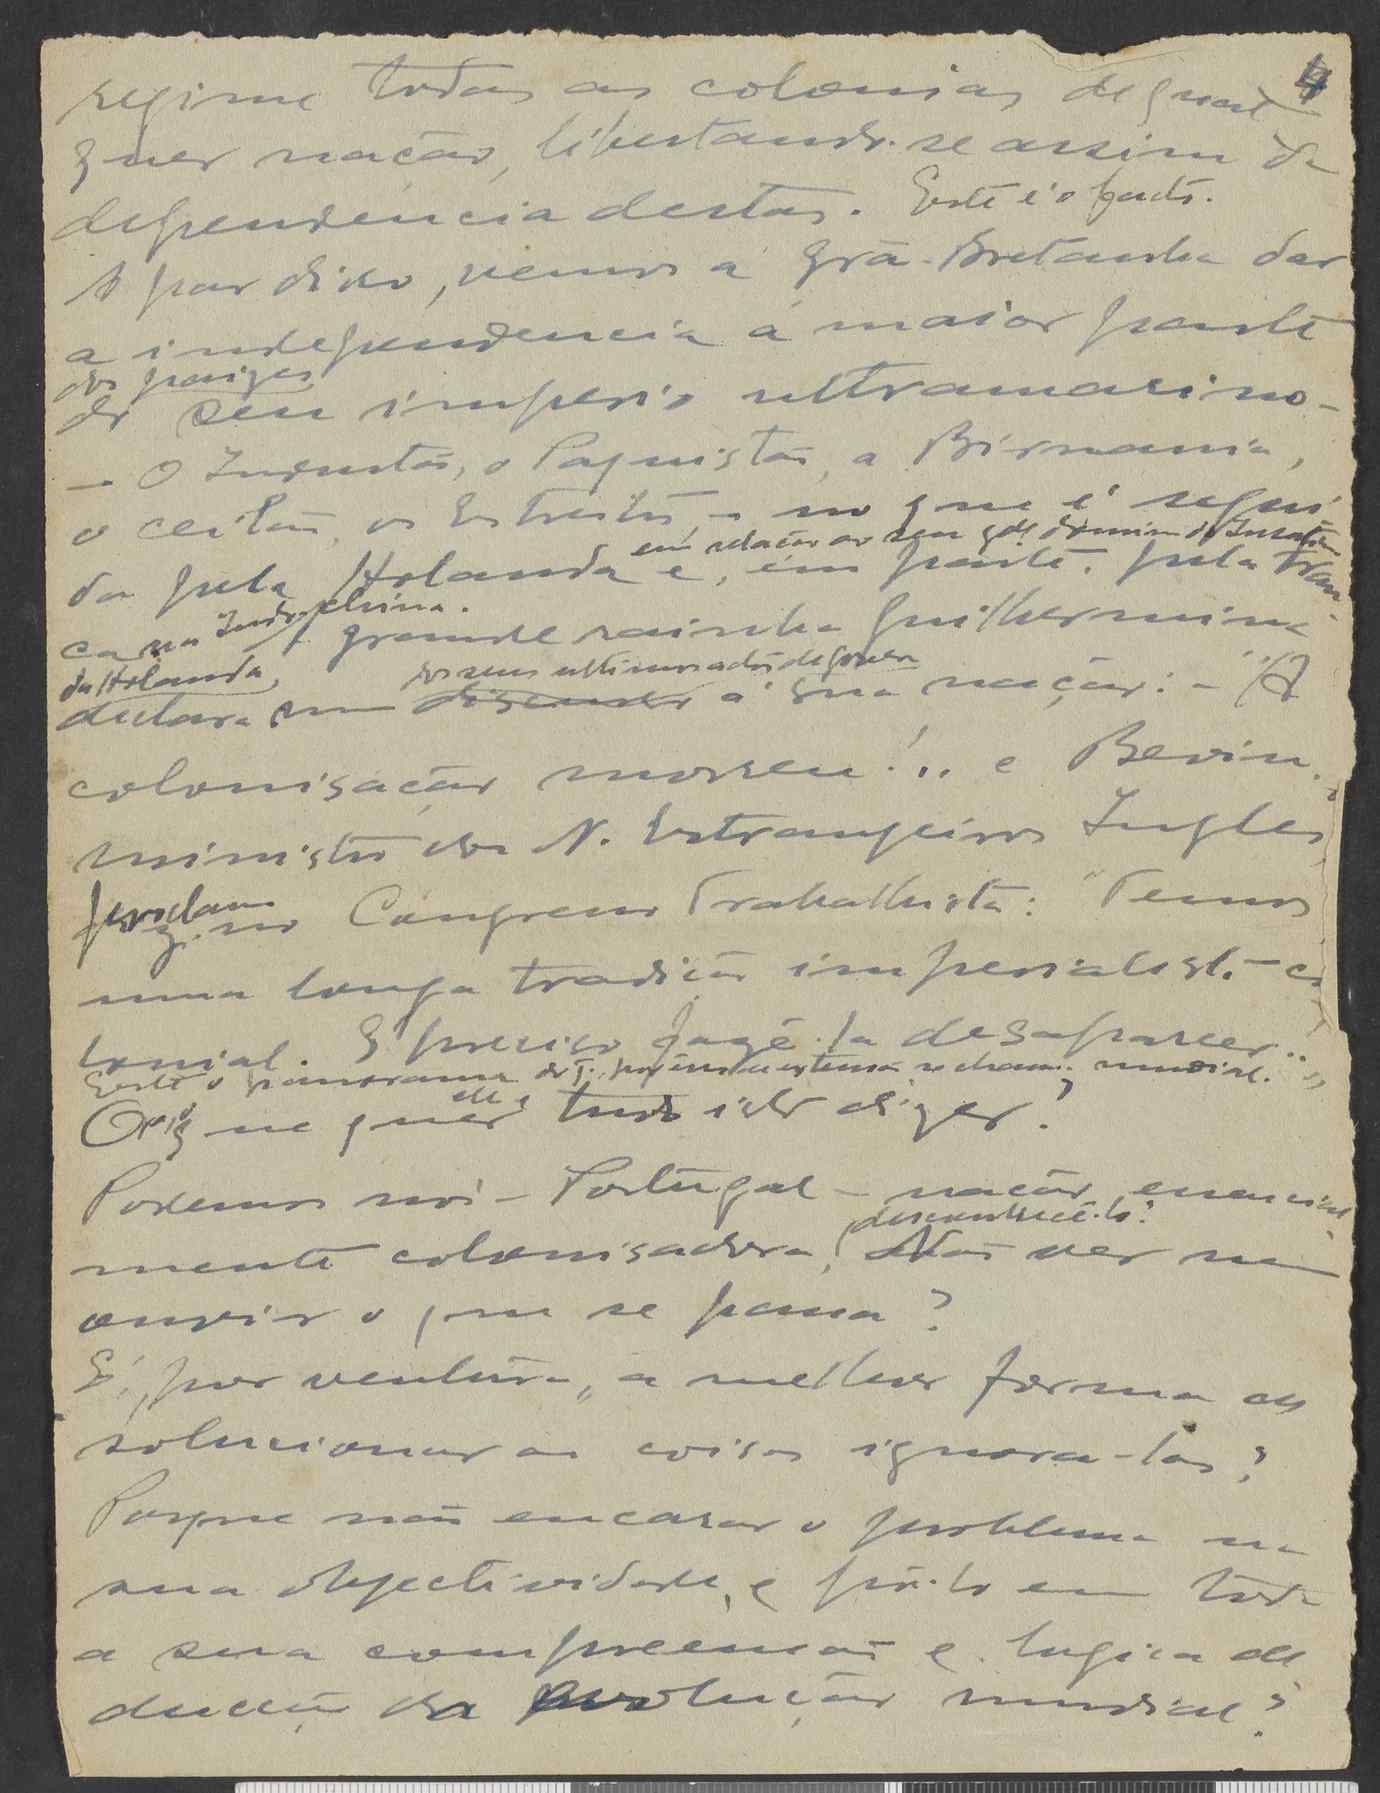 4
regime todas as colonias de qual-
quer nação, libertando-se assim da
dependência destas. Este é o facto.
A par disso, vemos a Grã-Bretanha dar
a independencia á maior parte
dos paizes
do seu imperio ultramarino-
- O Indostão, o Paquistão, a Birmania,
o Ceilão, os Estreitos, - no que é segui-
em relação ao seu gde. dominio
da pela Holanda e, em parte, pela Fran-
ça na Indo-china. A grande rainha Guilhermina
da Holanda, dos seus ultimos actos de
declara num discurso á sua nação: - "A
colonisação morreu!.. e Bevin,
ministro dos N. Estrangeiros Ingles,
proclama no Congresso Trabalhista: "Temos
uma longa tradição imperialista-co-
lonial. É preciso fazê-la desaparecer..."
Este o panorama mundial.
O que quer tudo isto dizer?
Podemos nós - Portugal - nação essencial-
desconhecê-lo?
mente colonisadora, Não ver nem
ouvir o que se passa?
É, por ventura, a melhor forma de
solucionar as coisas ignora-las?
Porque não encarar o problema na
sua objectividade, e pô-lo em toda
a sua compreensão e logica de-
ducção da evolução mundial?